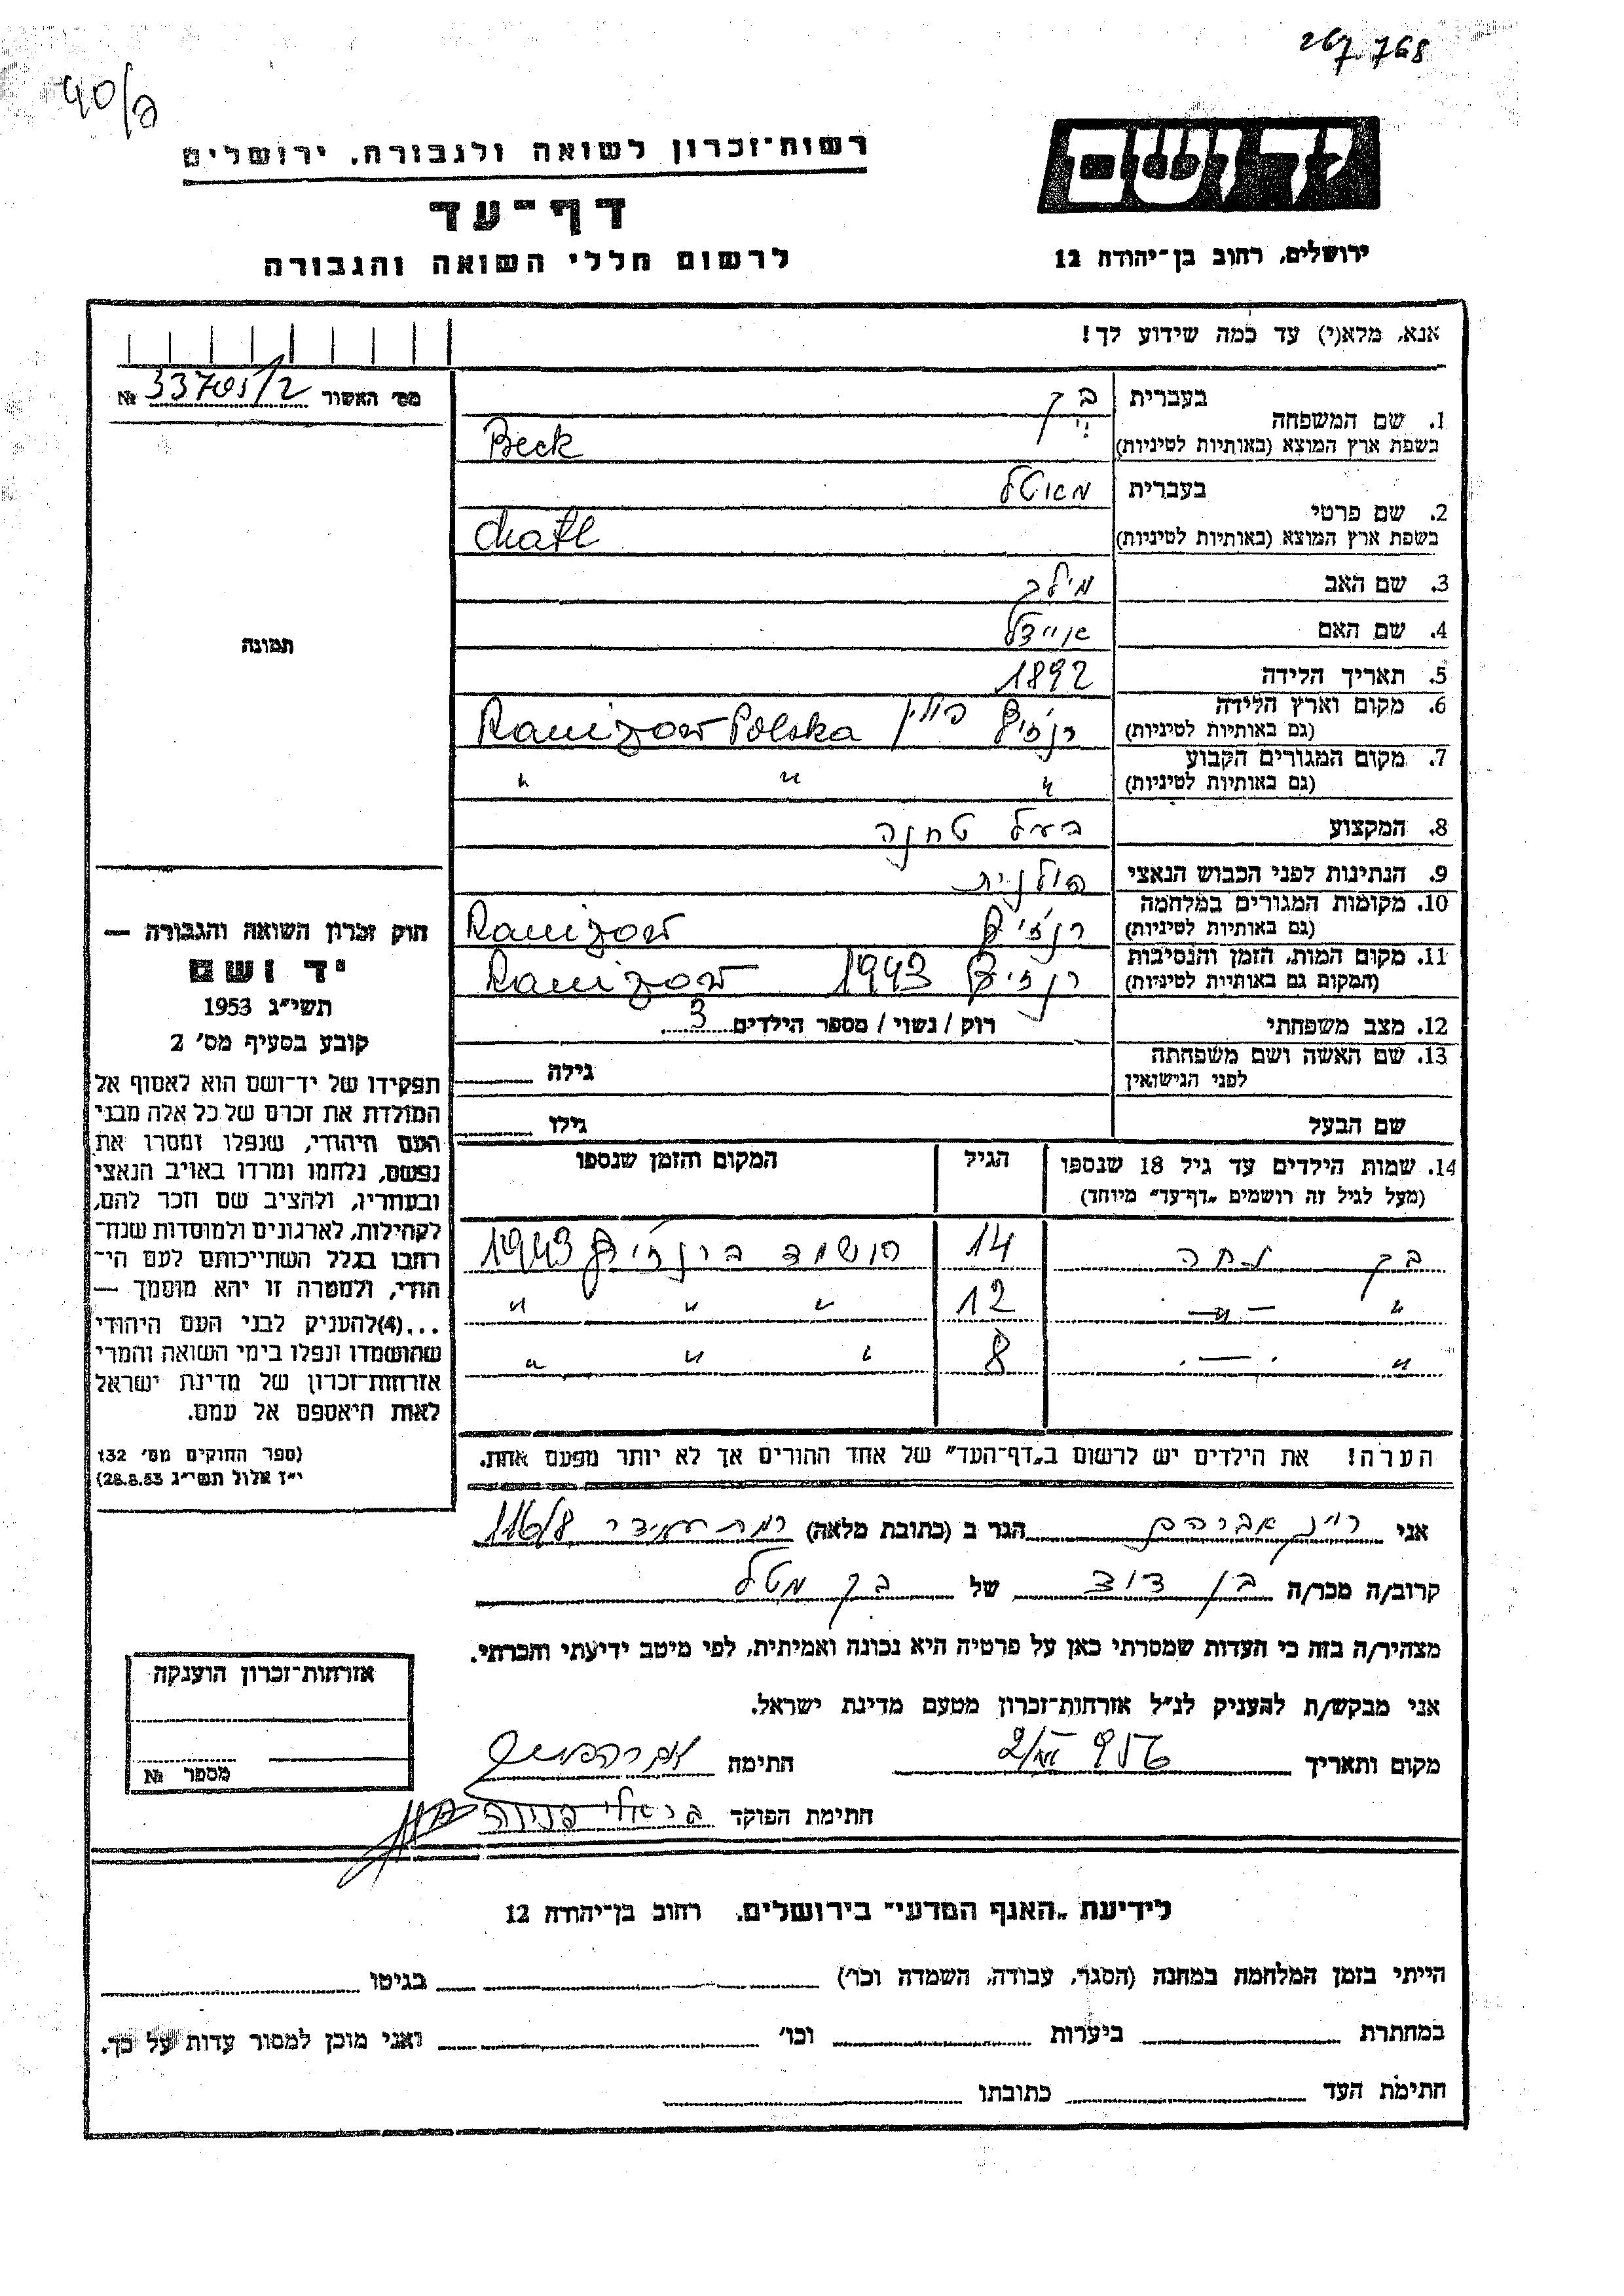 267.768
40/פ
יד ושם
רשות־זכרון לשואה ולגבורה, ירושלים
דף־עד
לרשום חללי השואה והגבורה
ירושלים, רחוב בן־יהודה 12
אנא, מלא(י) עד כמה שידוע לך!
מס׳ האשור 33705/2 №
1. שם המשפחה
בעברית בק
בשפת ארץ המוצא (באותיות לטיניות) Beck
2. שם פרטי
בעברית מאטל
בשפת ארץ המוצא (באותיות לטיניות) Matl
3. שם האב מילך
4. שם האם איידל
5. תאריך הלידה 1892
6. מקום וארץ הלידה
(גם באותיות לטיניות) רנז׳וב פולין Ranizow Polska
7. מקום המגורים הקבוע
(גם באותיות לטיניות) " " "
8. המקצוע בעל טחנה
9. הנתינות לפני הכבוש הנאצי פולנית
10. מקומות המגורים במלחמה
(גם באותיות לטיניות) Ranizow
11. מקום המות, הזמן והנסיבות
(המקום גם באותיות לטיניות) 1943 Ranizow
12. מצב משפחתי רוק / נשוי / מספר הילדים 3
13. שם האשה ושם משפחתה
לפני הנישואין גילה
שם הבעל גילו
14. שמות הילדים עד גיל 18 שנספו
(מעל לגיל זה רושמים „דף־עד״ מיוחד)
הגיל
המקום והזמן שנספו
בק 14 הושמד 1943
" — " — 12 " " "
" — 8 " " "
הערה! את הילדים יש לרשום ב„דף־העד״ של אחד ההורים אך לא יותר מפעם אחת.
תמונה
חוק זכרון השואה והגבורה —
יד ושם
תשי״ג 1953
קובע בסעיף מס׳ 2
תפקידו של יד־ושם הוא לאסוף אל
המולדת את זכרם של כל אלה מבני
העם היהודי, שנפלו ומסרו את
נפשם, נלחמו ומרדו באויב הנאצי
ובעוזריו, ולהציב שם וזכר להם,
לקהילות, לארגונים ולמוסדות שנח־
רבו בגלל השתייכותם לעם הי־
הודי, ולמטרה זו יהא מוסמך —
...(4)להעניק לבני העם היהודי
שהושמדו ונפלו בימי השואה והמרי
אזרחות־זכרון של מדינת ישראל
לאות היאספם אל עמם.
(ספר החוקים מס׳ 132
י״ז אלול תשי״ג 28.8.53)
אני אברהם הגר ב (כתובת מלאה) רמת עמידר 116/8
קרוב/ה מכר/ה בן דוד של בק מטל
מצהיר/ה בזה כי העדות שמסרתי כאן על פרטיה היא נכונה ואמיתית, לפי מיטב ידיעתי והכרתי.
אני מבקש/ת להעניק לנ״ל אזרחות־זכרון מטעם מדינת ישראל.
מקום ותאריך חתימה
חתימת הפוקד
אזרחות־זכרון הוענקה
מספר №
לידיעת „האגף המדעי״ בירושלים, רחוב בן־יהודה 12
הייתי בזמן המלחמה במחנה (הסגר, עבודה, השמדה וכו׳) בגיטו
במחתרת ביערות וכו׳ ואני מוכן למסור עדות על כך.
חתימת העד כתובתו